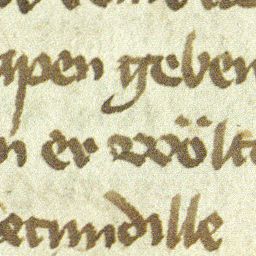 apen geben
n er wölt
secundille